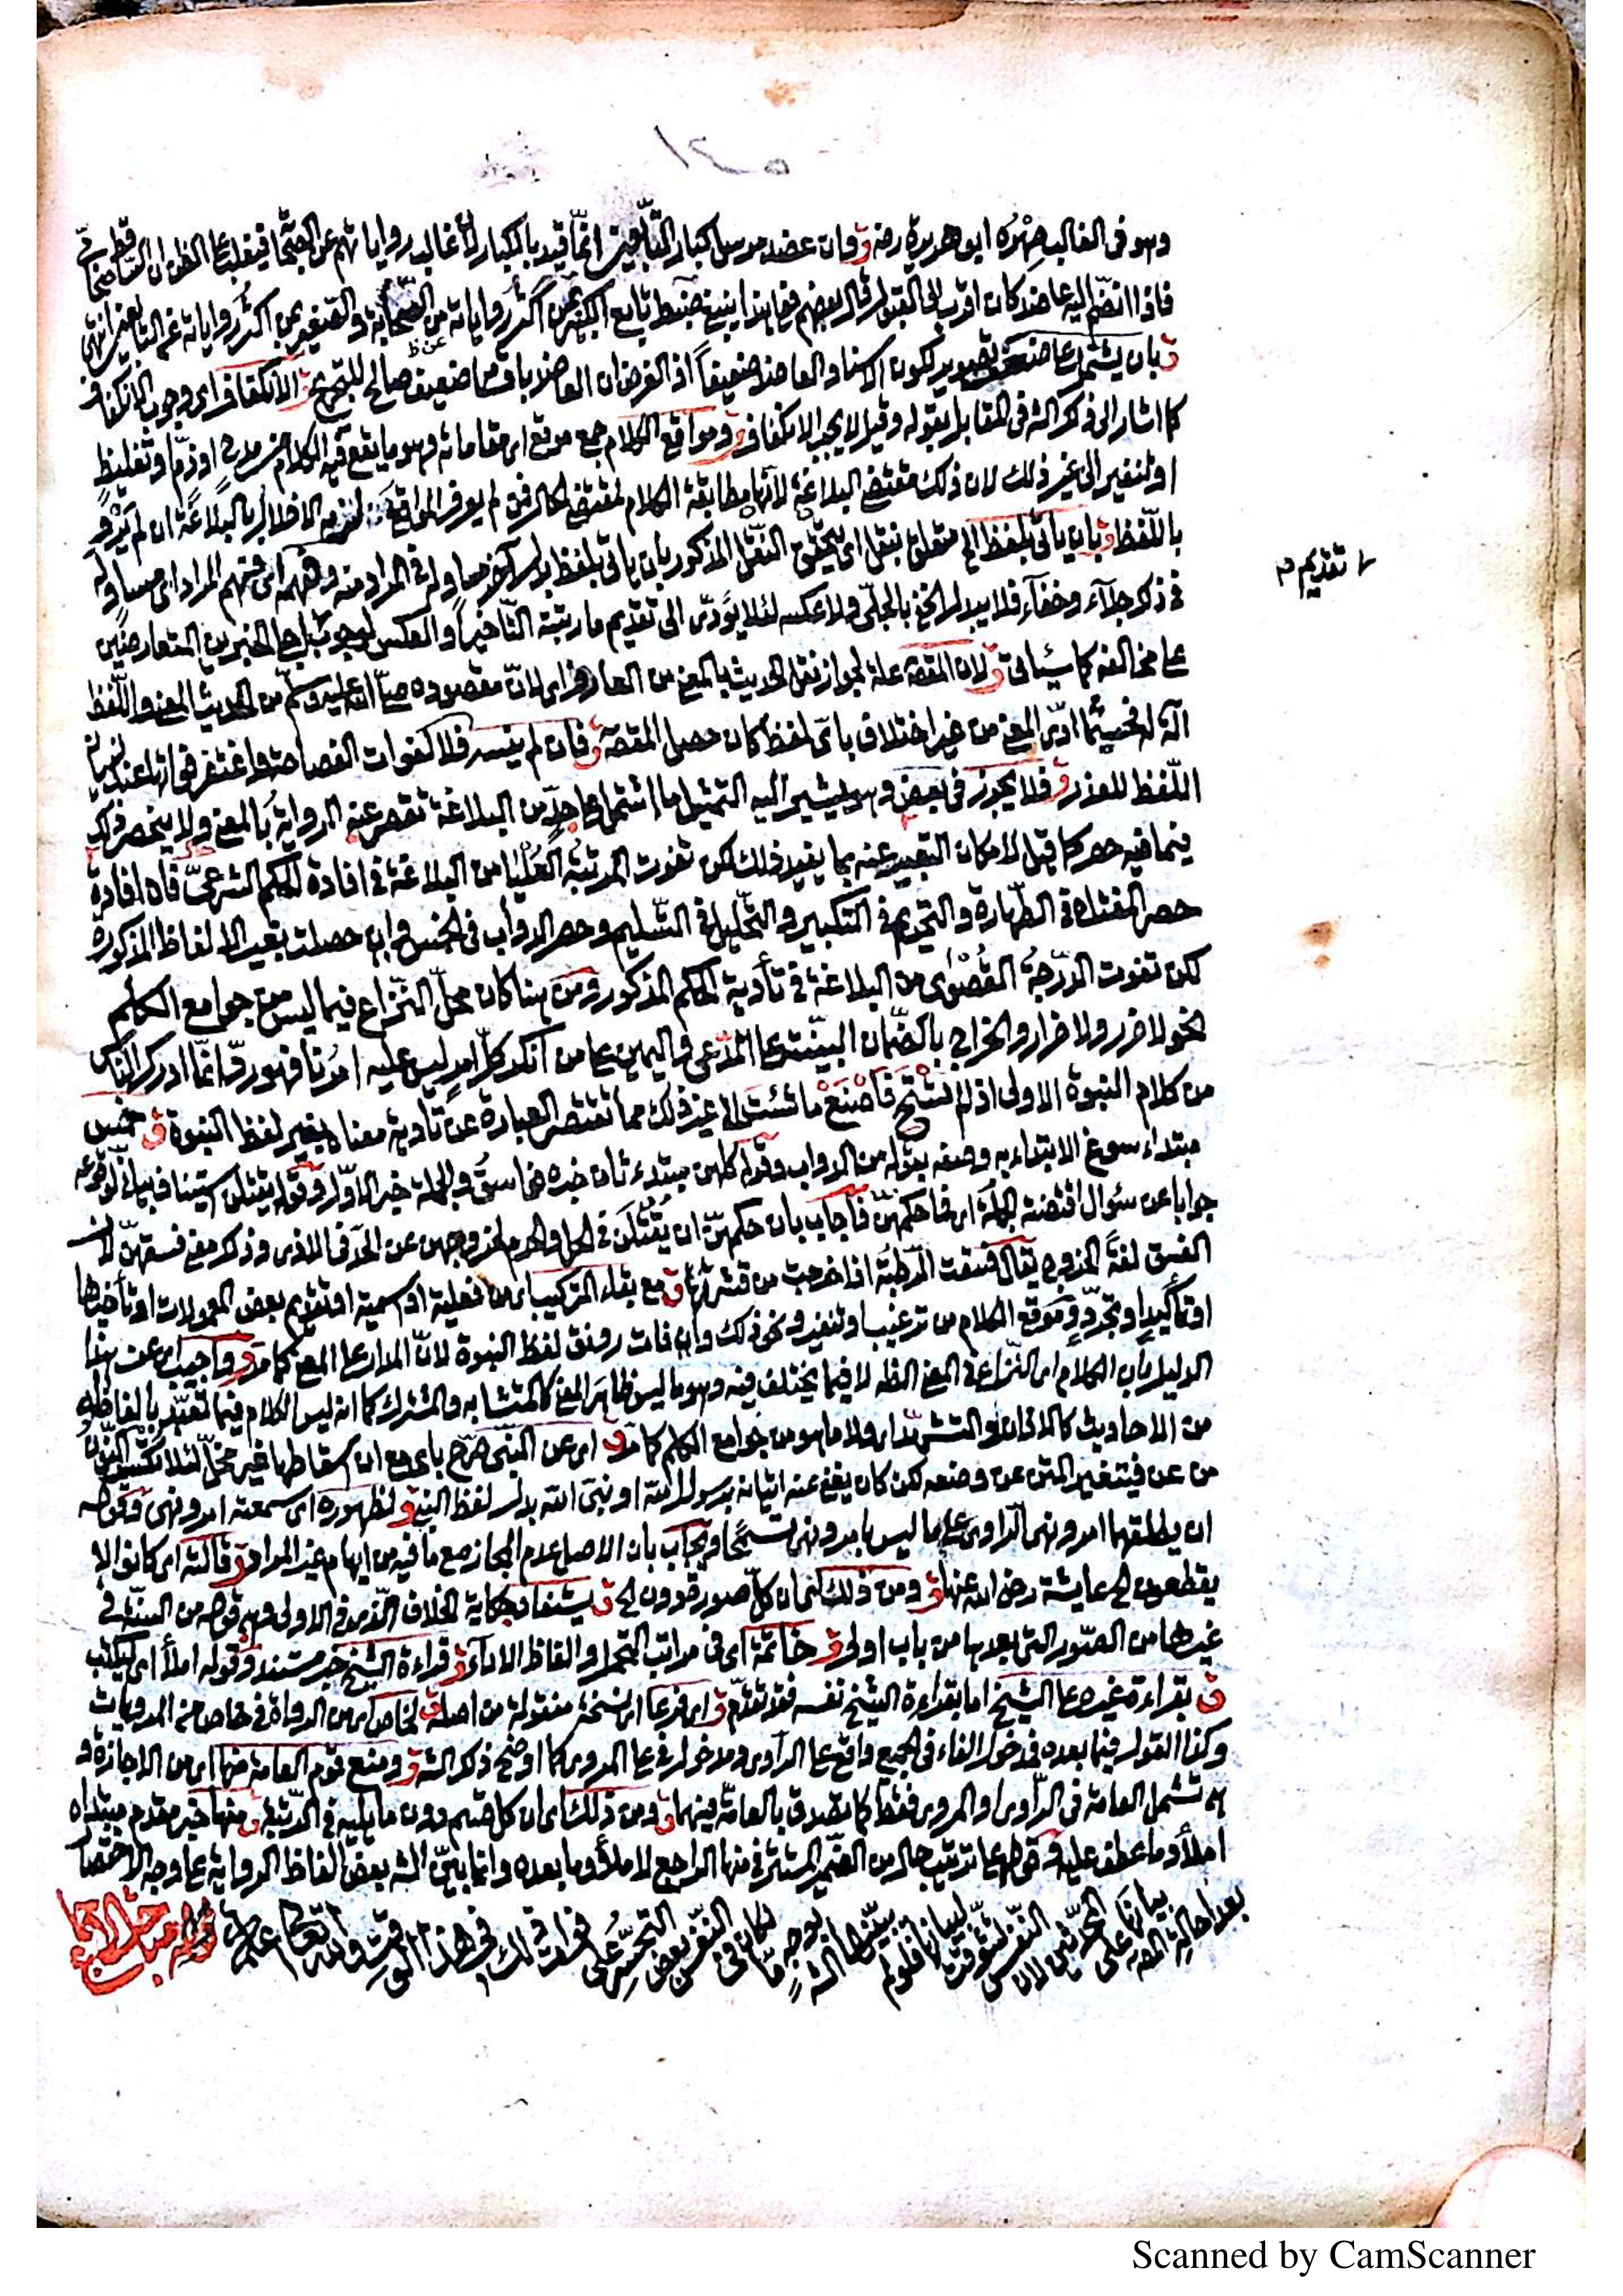 ١٢٥
وهو في الغالب صهره ابو هريرة رضه ق وان عضد مرسل كبار التابعين انما قيد بالكبار لان غالب رواياتهم عن الصحابة فيغلب على الظن ان الساقط صحابي
فاذا انضم اليه عاضد كان اقرب الى القبول قال بعضهم فعلى هذا ينبغي ضبط تابع الكبير بمن اكثر رواياته من الصحابة والصغير بمن اكثر رواياته عن التابعين انتهى
ق بان يشتمل على ضعف تصوير لكون الاسناد والعاضد ضعيفا اذ الفرض ان العاضد باق ضعيف صالح للترجيح ق الانكفاف اى وجوب الانكفاف
كما اشار الى ذكر الشه في المقابل بقوله وقيل لا يجب الانكفاف ق ومواقع الكلام جمع موقع اى مقاماته وهو ما يقع فيه الكلام من مدح او ذم او تغليظ
او تنفير الى غير ذلك لان ذلك مقتضى البلاغة لانها مطابقة الكلام لمقتضى الحال فمن لم يعرف المواقع لزمه الاخلال بالبلاغة ان لم يرد
باللفظ ق بان ياتي بلفظ الخ متعلق بنقل اى يتحقق النقل المذكور بان ياتي بلفظ بدل آخر مساو له في المراد منه وفهمه اى فهم المراد اى مساو له
في ذكر جلاء وخفاء فلا يبدل الخفي بالجلي ولا عكسه لئلا يؤدى الى تقديم ما رتبته التاخير او العكس لوجوب تقديم اجلى الخبرين المتعارضين
/ تقديم صه
على مخالفه كما سيأتي ق لان المقصه علة لجواز نقل الحديث بالمعنى من العارف اى لان مقصوده صلى الله عليه وسلم من الحديث المعنى واللفظ
آلة له فحيثما ادى المعنى من غير اختلاف باى لفظ كان حصل المقصه ق فان لم ينسه فلا لفوات الفصاحة واغتفر فواتها عند نسيان
اللفظ للعذر ق فلا يجوز في بعض وهو يشير اليه التمثيل ما اشتمل على حد من البلاغة تقصر عنه الرواية بالمعنى ولا ينحصر ذلك
فيما فيه حصر كما قيل لامكان التعبير عنه بما يفيد ذلك لكن تفوت المرتبة العليا من البلاغة في افادة الحكم الشرعي فان افادة
حصر المفتاح في الطهارة والتحريم في التكبير والتحليل في التسليم وحصر الدواب في الخمس وان حصلت بغير الالفاظ المذكورة
لكن تفوت الدرجة القصوى من البلاغة في تأدية الحكم المذكور ومن هنا كان محل النزاع فيما ليس من جوامع الكلم
نحو لا ضرر ولا ضرار والخراج بالضمان البينة على المدعى واليمين على من انكر كل امر ليس عليه امرنا فهو رد انما ادرك الناس
من كلام النبوة الاولى اذ لم تستح فاصنع ما شئت الى غير ذلك مما تقتصر العبارة عن تأدية معناه بغير لفظ النبوة ق خمس
مبتداء سوغ الابتداء به وصفه بقوله من الدواب وقوله كلهن مبتدء ثان خبره فاسق والجملة خبر الاول وقوله يقتلن استيناف بياني لوقوعه
جوابا عن سؤال اقتضته الجملة اى فما حكمهن فاجاب بان حكمهن ان يقتلن في الحل والحرم لخروجهن عن الحد في الاذى وذكر مع فسقهن لان
الفسق لغة الخروج يقال فسقت الرطبة اذا خرجت من قشرتها ق مع بقاء التركيب اى من فعلية او اسمية او تقديم بعض المعمولات او تأخيرها
او تأكيدا وتجردو موقع الكلام من ترغيب او تنفير ونحو ذلك وان فات رونق لفظ النبوة لان المدار على المعنى كما مر ق واجيب اى عن هذا
الدليل بان الكلام اى النزاع في المعنى الظه لا فيما يختلف فيه وهو ما ليس ظاهر المعنى كالمتشابه والمشترك كما انه ليس الكلام فيما تعبد بالفاظه
من الاحاديث كالاذان والتشهد اى ولا ما هو من جوامع الكلم كما مر ق اى عن النبي صرح باى مع ان اسقاطها غير مخل لئلا تكتب النون
من عن فيتغير المتن عن وضعه لكن كان يغني عنه اتيانه برسول الله او نبي الله بدل لفظ النبي ق لظهوره اى سمعته امر ونهى ق نحوه
ان يطلقهما امر ونهى الراوى على ما ليس بامر ونهى تسمحا ق يجاب بان الاصل عدم المجاز مع ما فيه من ايهام غير المراد ق قالته اى كانوا لا
يقطعون الخ عايشة رضي الله عنها ق ومن ذلك اى ان كل صور قد دون الخ ق يستفاد حكاية الخلاف الذى في الاولى وهو قوله من السنة في
غيرها من الصور التي بعدها من باب اولى ق خاتمة اى في مراتب التحمل والفاظ الاداء ق قراءة الشيخ خبر مستند ق وقوله املأ اى ليكتب
ق بقراءة غيره على الشيخ اما بقراءة الشيخ نفسه فقد تقدم ق او فرعا اى نسخة منقولة من اصله ق لخاص اى من الرواة في خاص من المرويات
وكذا القول فيما بعده فدخول الفاء في الجميع واقع على الراوى ومدخول في على المروى كما اوضح ذكر الشه ق ومنع قوم العامة منها اى من الاجازة و
هي تشمل العامة في الراوى او المروى فقط كما تصدق بالعامة فيهما ق ومن ذلك اى ان كل قسم دون ما يليه في الرتبة ق منها خبر مقدم مبتداه
املأ وما عطف عليه وقوله على ترتيب حال من الضمير المستتر في منها الراجع لاملأ وما بعده وانما يبين الشه بعض الفاظ الرواية على وجه الاختصار
بعد احالة المصه بيانها على المحدثين لان النفس تشوقت لبيانها فلو لم يبينها الشه بوجه ما لكان في النفس بعض التحسر على فوات ذلك في هذا الوقت والله تعالى اعلم
قوله مباحث الاجماع